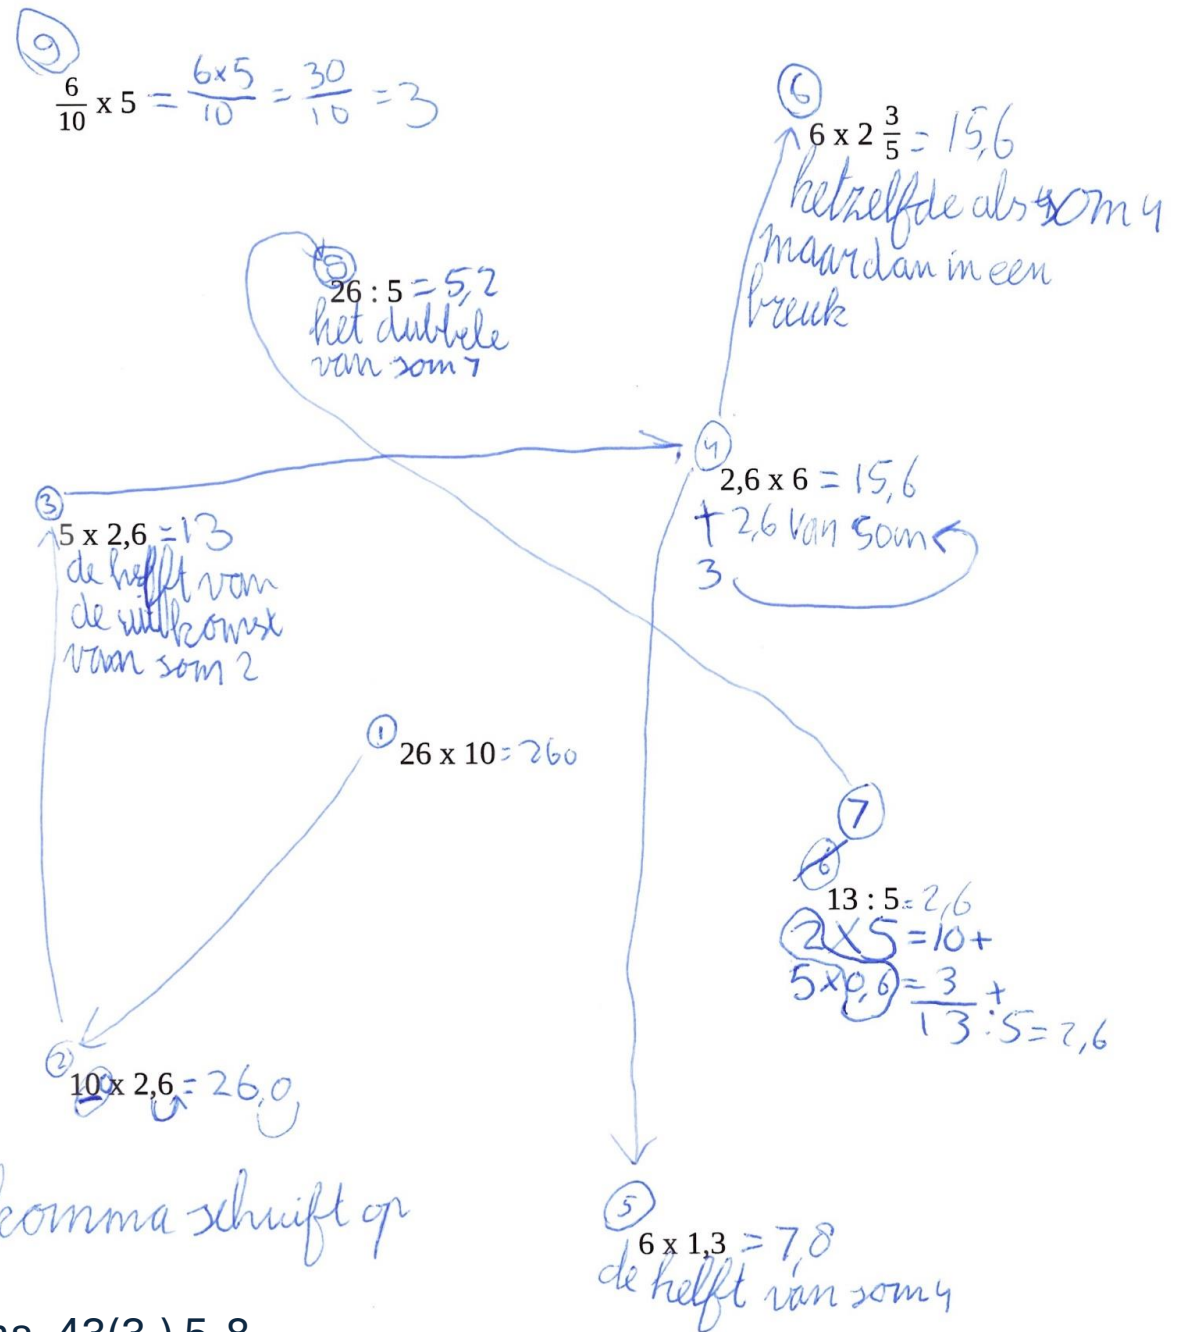 9
6/10 x 5 = 6x5/10 = 30/10 = 3
6
6 x 2 3/5 = 15,6
hetzelfde als som 4
maar dan in een
breuk
26 : 5 = 5,2
het dubbele
van som 7
4
2,6 x 6 = 15,6
+ 2,6 van som
3
3
5 x 2,6 = 13
de helft van
de uitkomst
van som 2
1
26 x 10 = 260
7
6
13 : 5 = 2,6
2 x 5 = 10 +
5 x 0,6 = 3 +
13 : 5 = 2,6
2
10 x 2,6 = 26,0
komma schuift op
5
6 x 1,3 = 7,8
de helft van som 4